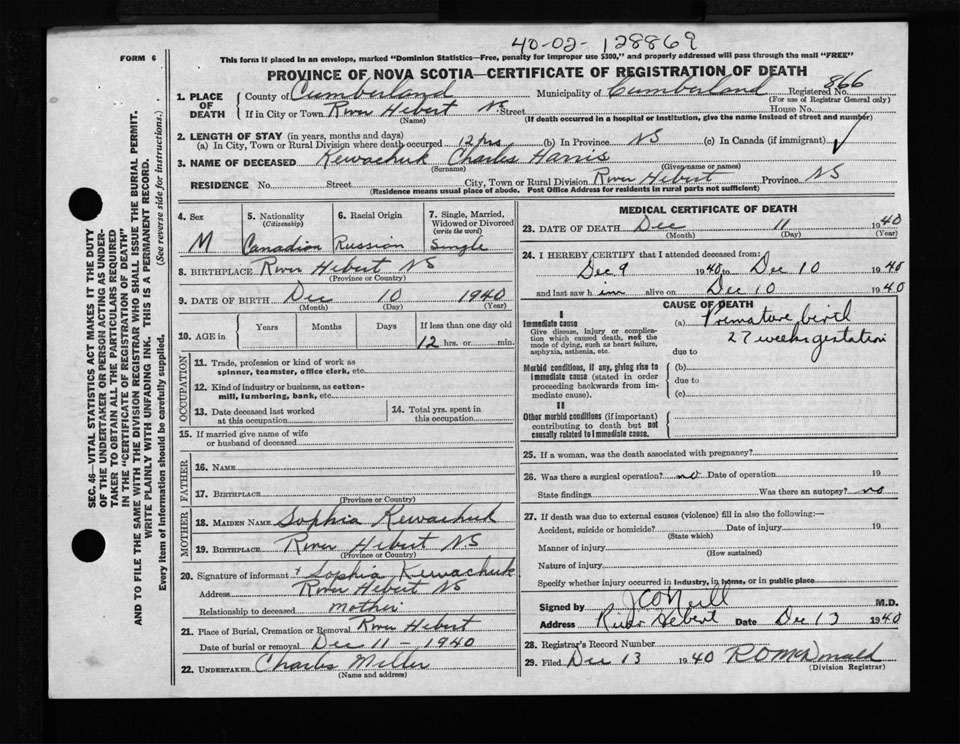 40-02-128869
FORM 6
This form if placed in an envelope, marked "Dominion Statistics—Free, penalty for improper use $300," and properly addressed will pass through the mail "FREE"
PROVINCE OF NOVA SCOTIA—CERTIFICATE OF REGISTRATION OF DEATH
1. PLACE OF DEATH County of Cumberland Municipality of Cumberland Registered No. 866
(For use of Registrar General only)
If in City or Town River Hebert NS Street House No.
(Name) (If death occurred in a hospital or institution, give the name instead of street and number)
2. LENGTH OF STAY (in years, months and days)
(a) In City, Town or Rural Division where death occurred 12 hrs (b) In Province NS (c) In Canada (if immigrant) ✓
3. NAME OF DECEASED Kewachuk Charles Harris
(Surname) (Given name or names)
RESIDENCE No. Street City, Town or Rural Division River Hebert Province NS
(Residence means usual place of abode. Post Office Address for residents in rural parts not sufficient)
4. Sex 5. Nationality (Citizenship) 6. Racial Origin 7. Single, Married, Widowed or Divorced (write the word)
M Canadian Russian Single
8. BIRTHPLACE River Hebert NS
(Province or Country)
9. DATE OF BIRTH Dec 10 1940
(Month) (Day) (Year)
10. AGE in Years Months Days If less than one day old
12 hrs. or min.
OCCUPATION
11. Trade, profession or kind of work as spinner, teamster, office clerk, etc.
12. Kind of industry or business, as cotton-mill, lumbering, bank, etc.
13. Date deceased last worked at this occupation
14. Total yrs. spent in this occupation
15. If married give name of wife or husband of deceased
FATHER
16. NAME
17. BIRTHPLACE
(Province or Country)
MOTHER
18. MAIDEN NAME Sophia Kewachuk
19. BIRTHPLACE River Hebert NS
(Province or Country)
20. Signature of informant Sophia Kewachuk
Address River Hebert NS
Relationship to deceased mother
21. Place of Burial, Cremation or Removal River Hebert
Date of burial or removal Dec 11 - 1940
22. UNDERTAKER Charles Miller
(Name and address)
MEDICAL CERTIFICATE OF DEATH
23. DATE OF DEATH Dec 11 1940
(Month) (Day) (Year)
24. I HEREBY CERTIFY that I attended deceased from:
Dec 9 1940 to Dec 10 1940
and last saw him alive on Dec 10 1940
CAUSE OF DEATH
I
Immediate cause (a) Premature birth
Give disease, injury or complication which caused death, not the mode of dying, such as heart failure, asphyxia, asthenia, etc.
27 weeks gestation
due to
Morbid conditions, if any, giving rise to immediate cause (stated in order proceeding backwards from immediate cause).
(b)
due to
(c)
II
Other morbid conditions (if important) contributing to death but not causally related to immediate cause.
25. If a woman, was the death associated with pregnancy?
26. Was there a surgical operation? no Date of operation 19
State findings Was there an autopsy? no
27. If death was due to external causes (violence) fill in also the following:—
Accident, suicide or homicide? Date of injury 19
(State which)
Manner of injury
(How sustained)
Nature of injury
Specify whether injury occurred in industry, in home, or in public place
Signed by JCO'Neill M.D.
Address River Hebert Date Dec 13 1940
28. Registrar's Record Number
29. Filed Dec 13 1940 R O McDonald
(Division Registrar)
SEC. 46—VITAL STATISTICS ACT MAKES IT THE DUTY
OF THE UNDERTAKER OR PERSON ACTING AS UNDER-
TAKER TO OBTAIN ALL THE PARTICULARS REQUIRED
IN THE "CERTIFICATE OF REGISTRATION OF DEATH"
AND TO FILE THE SAME WITH THE DIVISION REGISTRAR WHO SHALL ISSUE THE BURIAL PERMIT.
WRITE PLAINLY WITH UNFADING INK. THIS IS A PERMANENT RECORD.
Every item of information should be carefully supplied. (See reverse side for instructions.)